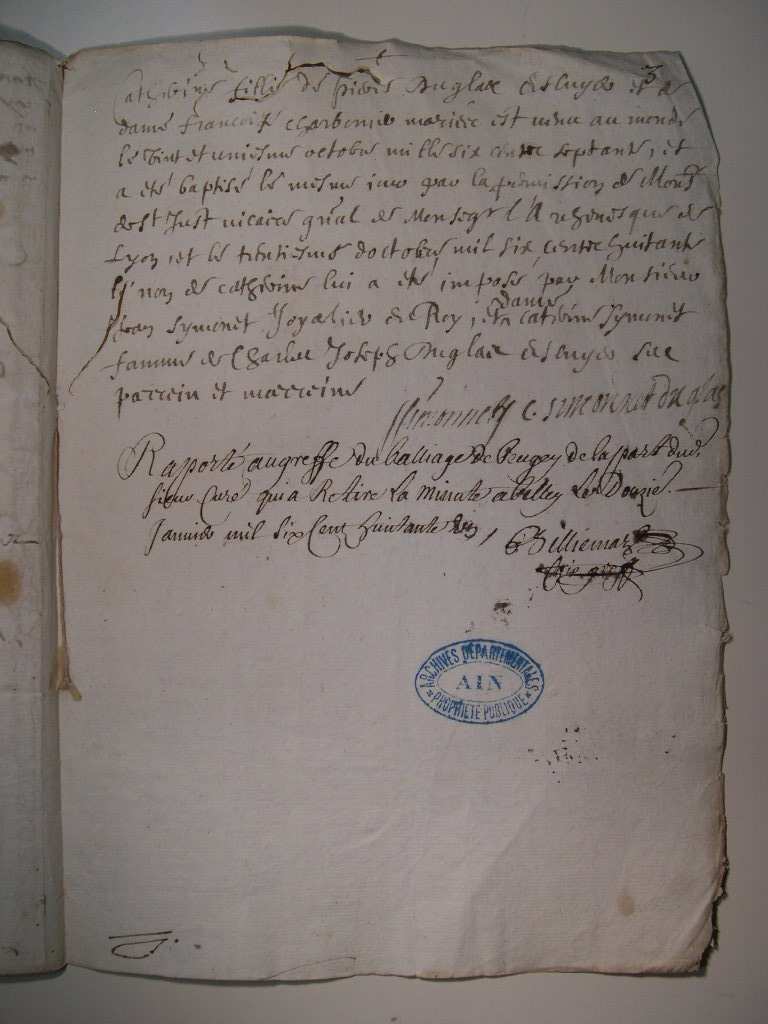 3
Catherine fille de pierre Duglas escuyer et de
dame francoise charbonier mariée est venu au monde
le vint et uniesme octobre mille six cents septante, et
a eté baptisé le mesme iour par la permission de Monsr
de St Just vicaire gnal de Monsegr l'Archevesque de
Lyon, et le trentiesme doctobre mil six cents huitante
le nom de catherine lui a eté imposé par Monsieur
Jean Symonet Joyalier du Roy, et dame caterine Symonet
famme de Charles Joseph Duglas escuyer ses
parrein et marreine
Simonnet C. simonnet duglas
Raporté au greffe du balliage de Beugey de la part dud.
sieur Curé qui a Retiré La Minute a belley Le Douzie.
Janvier mil six Cent huitante
Billiemaz
ARCHIVES DÉPARTEMENTALES
AIN
PROPRIÉTÉ PUBLIQUE